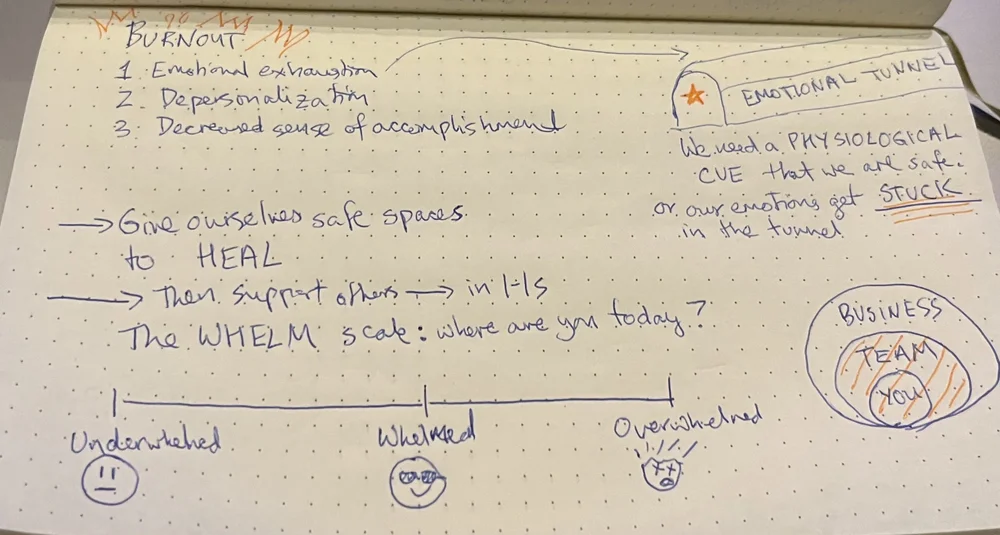 BURNOUT
1. Emotional exhaustion
2. Depersonalization
3. Decreased sense of accomplishment
EMOTIONAL TUNNEL
We need a PHYSIOLOGICAL
CUE that we are safe.
or our emotions get STUCK
in the tunnel
→ Give ourselves safe spaces
to HEAL
→ Then support others → in 1-1s
The WHELM scale: where are you today?
Underwhelmed
Whelmed
Overwhelmed
BUSINESS
TEAM
YOU